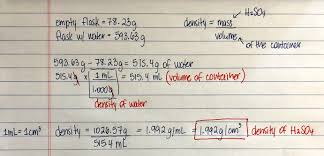 empty flask = 78.23g
flask w/ water = 593.63g
density = mass ← H₂SO₄
volume ← of the container
593.63g - 78.23g = 515.4g of water
515.4g × 1mL / 1.000g = 515.4 mL (volume of container)
density of water
1mL = 1cm³
density = 1026.57g / 515.4 mL = 1.992 g/mL = 1.992g/cm³ density of H₂SO₄